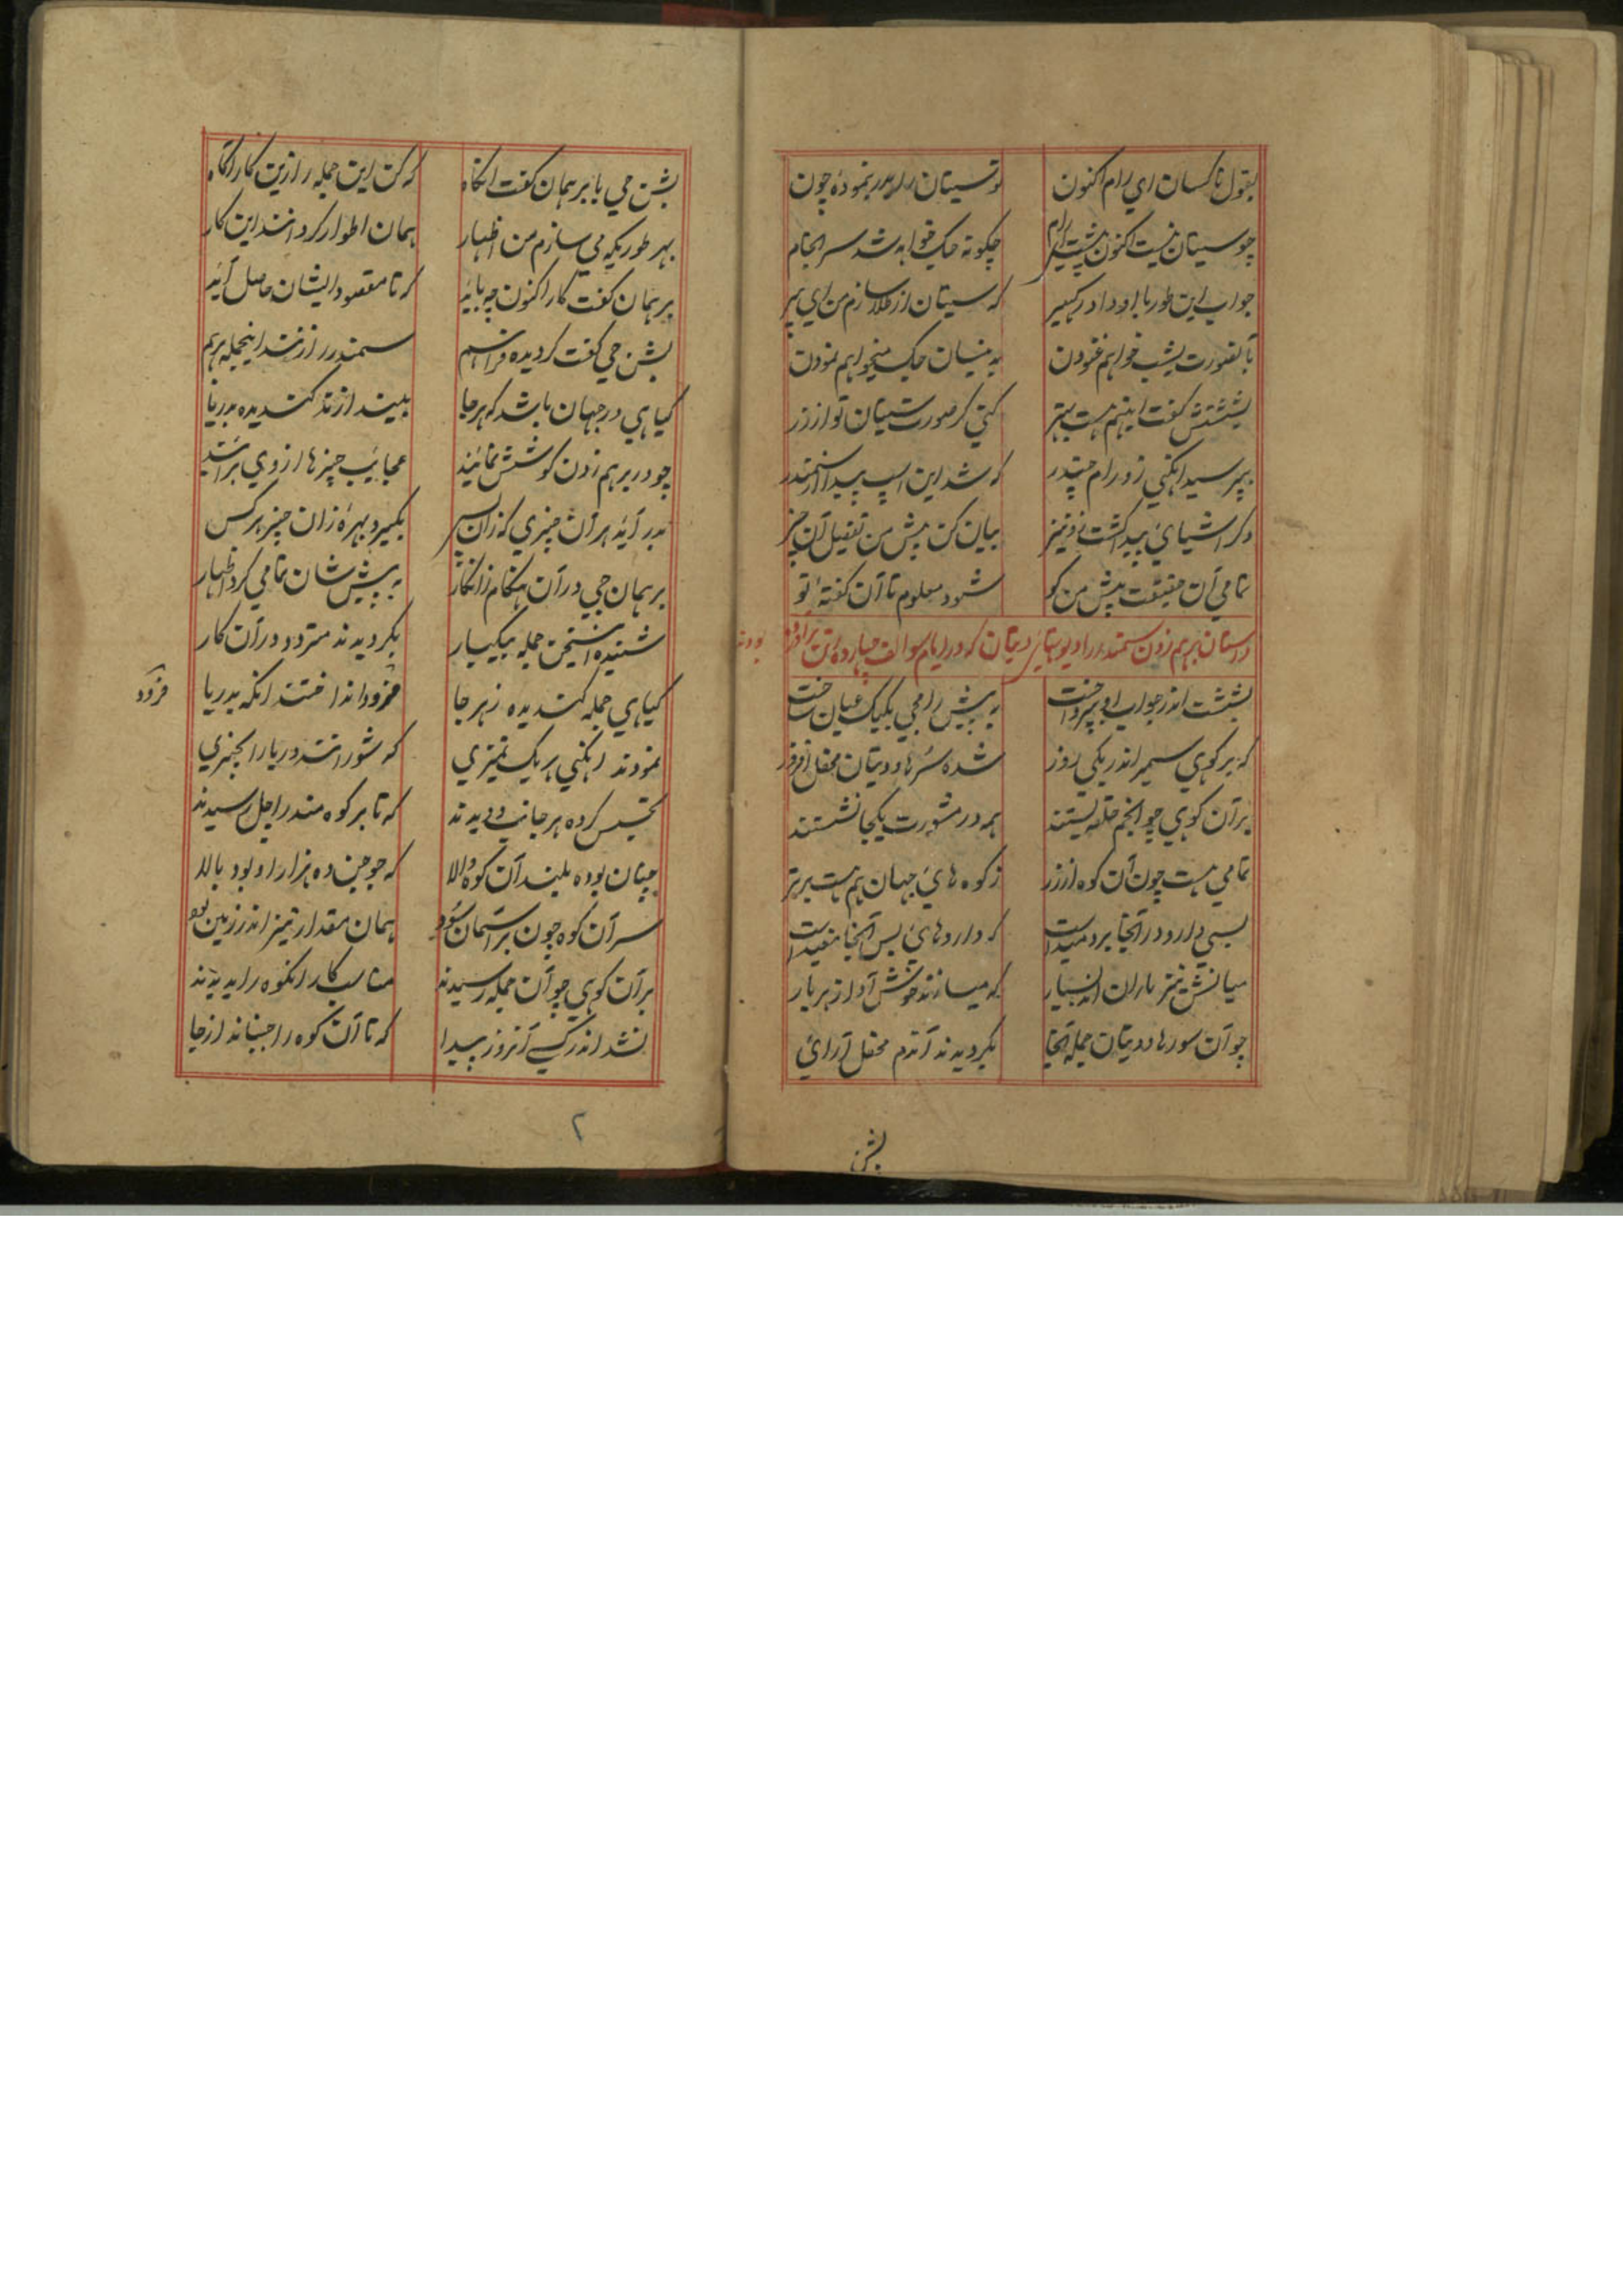 بقول ناکسان اي رام اکنون توسیتان را بدر بنمودۀ چون
چو سیتان نیست اکنون پیشت ای رام چکونه جک خواهد شد سر انجام
جواب این طور با او داد رکهبیر که سیتان از طلا سازم من اي پیر
بآنصورت بشب خواهم غنودن بدینسان جک میخواهم نمودن
بششتش کفت اینهم هست بهتر کني کر صورت سیتان تو از زر
بپرسید انکهي زو رام چندر که شد این اسپ پیدا از سمندر
دکر اشیاي پیدا کشت زو نیز بیان کن پیش من تفصیل آن چیز
تمامي آن حقیقت پیش من کو شود معلوم تا آن کفتۀ تو
داستان برهم زدن سمندر را دیوتهاي دیتان که در ایام سوالف چهارده رتن برآورده بودند
بششت اندر جواب او بپرداخت به پیش رامجي یکیک عیان ساخت
که بر کوهي سمیر اندر یکي روز شده سُرها و دیتان محفل افروز
بر آن کوهي چو انجم حلقه بستند همه در مشورت یکجا نشستند
تمامي هست چون آن کوه از زر ز کوه هاي جهان هم هست برتر
بسي دارو در آنجا بردمیدست که داروهاي بس آنجا مفیدست
میانش نیز باران اند بسیار که میسازند خوش آواز هر بار
چو آن سورها و دیتان جمله آنجا بکردیدند آندم محفل آراي
بشن
بشن جي با برهمان کفت انکاه که کن این جمله را زین کار آکاه
بهر طوریکه مي سازم من اظهار همان اطوار کرد انند این کار
برهمان کفت کار اکنون چه باید که تا مقصود ایشان حاصل آید
بشن جي کفت کردیده فراهم سمندر را زنند اینجمله برهم
کیاهي در جهان باشد که هر جا بیندازند کندیده بدریا
چو در برهم زدن کوشش نمایند عجایب چیزها از وي بر آیند
بدر آید هر آن چیزي که زان پس بکیرد بهره زان چیز هر کس
برهمان جي در آن هنکام زانکار به پیش شان تمامي کرد اظهار
شنیده این سخن جمله بیکبار بکردیدند متردد در آن کار
کیاهي جمله کندیده ز هر جا فرود انداختند انکه بدریا
فرود
نمودند انکهي هر یک تمیزي که شورانند دریا را بچیزي
تجسس کرده هر جانب دویدند که تا بر کوه مندراچل رسیدند
چنان بوده بلند آن کوه والا که جوجن ده هزار او بود بالا
سر آن کوه چون بر آسمان سود همان مقدار نیز اندر زمین بود
بر آن کوهي چو آن جمله رسیدند مناسب کار انکوه را بدیدند
نشد اندر کسي آنروز پیدا که تا آن کوه را جنباند از جا
۲